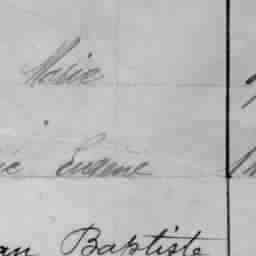 Marie
Eugène
Baptiste